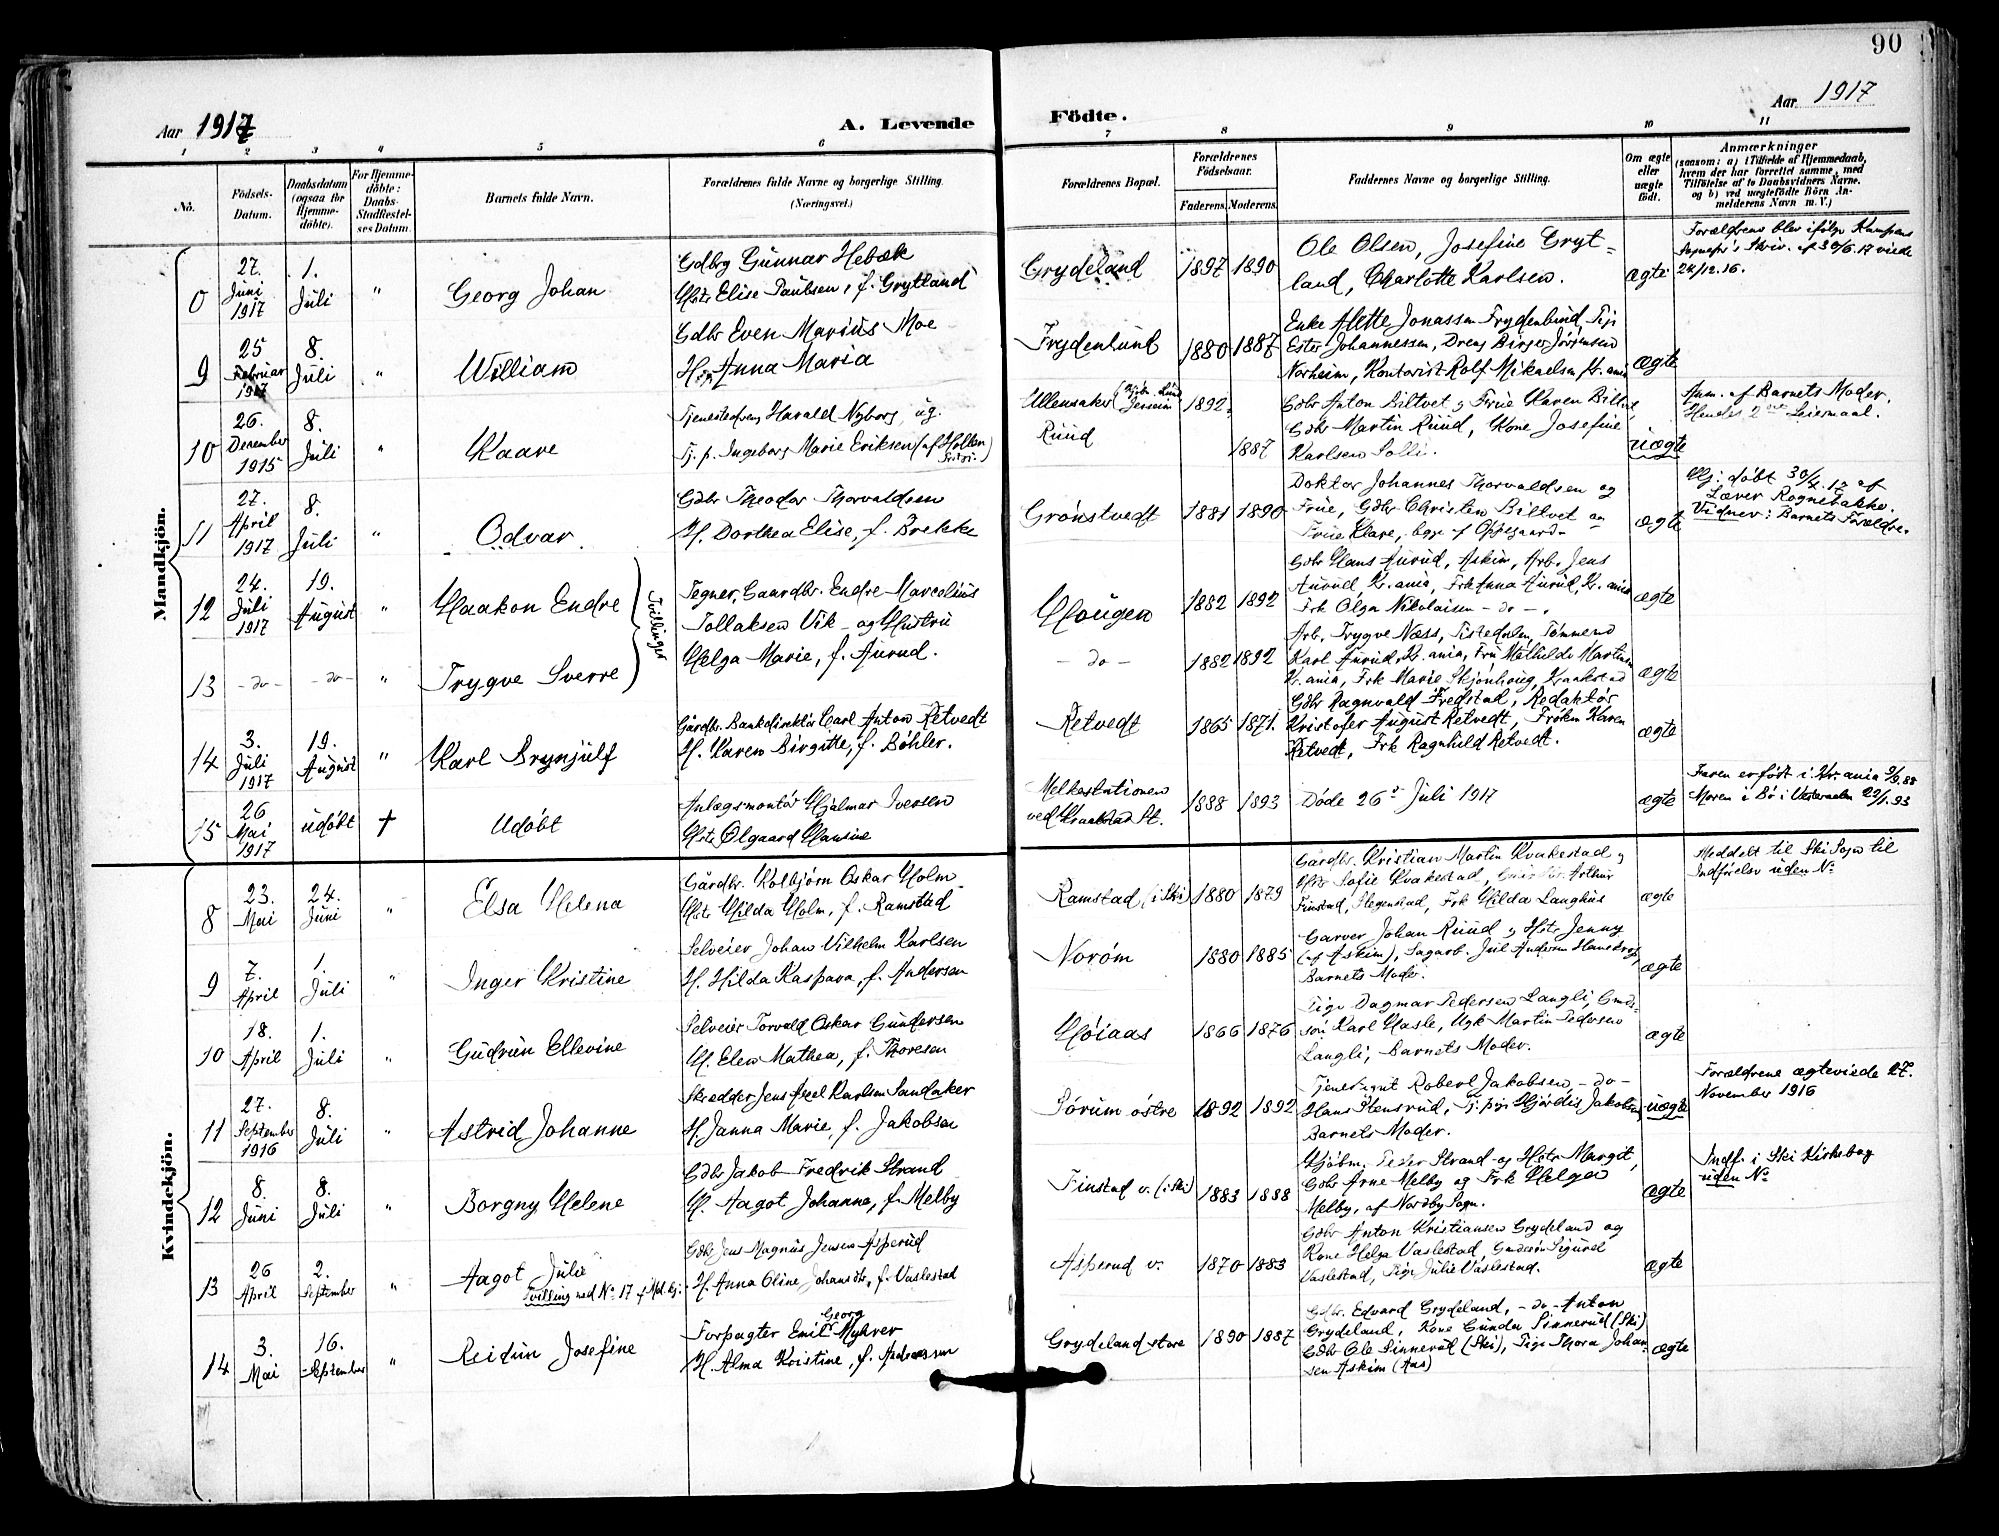 90
Aar 1917
A. Levende
Födte.
Aar 1917
1 2 3 4 5 6 7 8 9 10 11
No.
Födsels-
Datum.
Daabsdatum
(ogsaa for
Hjemme-
döbte).
For Hjemme-
döbte:
Daabs-
Stadfæstel-
ses Datum.
Barnets fulde Navn.
Forældrenes fulde Navne og borgerlige Stilling.
(Næringsvei.)
Forældrenes Bopæl.
Forældrenes
Födselsaar.
Faderens. Moderens.
Faddernes Navne og borgerlige Stilling.
Om ægte
eller
uægte
født.
Anmærkninger
(saasom: a) i Tilfælde af Hjemmedaab,
hvem der har forrettet samme, med
Tilföielse af to Daabsvidners Navne.
og b) ved uægtefödte Börn An-
melderens Navn m. V.)
Mandkjön.
27.
Juni
1917
1.
Juli
"
Georg Johan
Gdbrg Gunnar Hebæk
Hstr Elise Paulsen, f. Grytland
Grydeland
1897 1890
Ole Olsen, Josefine Gryt-
land, Charlotte Karlsen.
ægte
Forældrene blev ifølge Kampens
Sognepr's Skriv. af 30/6 17 viede
24/12.16.
9
25
Februar
1917
8.
Juli
"
William
Gdbr Even Marius Moe
H. Anna Maria
Frydenlund
1880 1887
Enke Alette Jonassen Frydenlund, Pige
Ester Johannessen, Dreng Birger Jörgensen
Norheim, Kontorist Rolf Mikaelsen Kr.ania
ægte
10
26.
Desember
1915
8.
Juli
"
Kaare
Tjenestedreng Harald Nyborg, ug.
Tj. p. Ingeborg Marie Eriksen (af Holken
Ullensaker
Ruud
1892.
1887
Gdbr Anton Biltvet og Frue Karen Biltvet,
Gdbr Martin Ruud, Kone Josefine
Karlsen Solli.
uægte
Anm. af Barnets Moder.
Hendes 2det Leiermaal.
11
27.
April
1917
8.
Juli
"
Odvar
Gdbr Theodor Thorvaldsen
H. Dorthea Elise, f. Brekke
Grönstvedt
1881 1890
Doktor Johannes Thorvaldsen og
Frue, Gdbr Christen Biltvet og
Frue Klare, begge af Oppegaard
ægte
Hj. døbt 30/4.17 af
Lærer Rognebakke.
Vidner: Barnets Forældre.
12
24.
Juli
1917
19.
August
"
Haakon Endre
Tvillinger
Tegner, Gaardbr. Endre Marcelius
Tollaksen Vik - og Hustru
Helga Marie, f. Aurud.
Hougen
1882 1892
Gdbr Hans Aurud, Askim, Arb. Jens
Aurud, Kr.ania, Frk Anna Aurud, Kr.ania
Frk Olga Nikolaisen - do -.
ægte
13
- do -
- do -
"
Trygve Sverre
- do -
1882 1892
Arb. Trygve Næss, Tistedalen, Tömmend
Karl Aurud, Kr.ania, Fru Mathilde Martinsen
Kr.ania, Frk Marie Skjönhoug, Kraakstad
ægte
14
3.
Juli
1917
19.
August
"
Karl Brynjulf
Gårdbr. Bankdirektör Carl Anton Retvedt
H. Karen Birgitte, f. Bøhler.
Retvedt
1865 1871.
Gdbr Ragnvald Fredstad, Redaktör
Kristofer August Retvedt, Fröken Karen
Retvedt, Frk Ragnhild Retvedt.
ægte
15
26
Mai
1917
udøbt
†
Udøbt
Anlægsmontör Hjalmar Iversen
Hstr Olgaard Hansine
Melkestationen
ved Kraakstad St.
1888 1893
Døde 26de Juli 1917
ægte
Faren er født i Kr.ania 9/9.88
Moren i Bø i Vesteraalen 22/1.93
Kvindekjön.
8
23.
Mai
24.
Juni
"
Elsa Helena
Gårdbr. Kolbjörn Oskar Holm
Hstr Hilda Holm, f. Ramstad
Ramstad, (i Ski)
1880 1879
Gårdbr. Kristian Martin Kvakestad og
Hstr Sofie Kvakestad, Arthur
Finstad, Hegenstad, Frk Hilda Langhus
ægte
Meddelt til Ski Sogn til
Indførelse uden No
9
7.
April
1.
Juli
"
Inger Kristine
Selveier Johan Vilhelm Karlsen
H. Hilda Kaspara, f. Andersen
Norøm
1880 1885
Garver Johan Ruud og Hstr Jenny
(af Askim), Sagarb. Juul Andersen
Barnets Moder.
ægte
10
18.
April
1.
Juli
"
Gudrun Ellevine
Selveier Torvald Oskar Gundersen
H. Elen Mathea, f. Thoresen
Høiaas
1866 1876
Pige Dagmar Pedersen Langli, Gmds-
søn Karl Hasle, Ugk Martin Pedersen
Langli, Barnets Moder.
ægte
11
27.
September
1916
8.
Juli
"
Astrid Johanne
Skredder Jens Axel Karlsen Sandaker
H. Janna Marie, f. Jakobsen
Sørum østre
1892 1892
Tjenestegut Robert Jakobsen, - do -
Hans Stensrud, Tj. pige Hjördis Jakobsen,
Barnets Moder.
uægte
Forældrene ægteviede 27.
November 1916
12
8.
Juni
8.
Juli
"
Borgny Helene
Gdbr Jakob Fredrik Strand
H. Aagot Johanne, f. Melby
Finstad v. (i Ski)
1883 1888
Kjøbm. Peder Strand og Hstr Margit,
Gdbr Arne Melby og Frk Helga
Melby, af Nordby Sogn.
ægte
Indf. i Ski Kirkebog
uden No
13
26
April
2.
September
"
Aagot Julie
Tvilling med No 17 f Md. kj.
Gdbr Jens Magnus Jensen Asperud
H. Anna Oline Johansdtr, f. Vaslestad
Asperud v.
1870 1883
Gdbr Anton Kristiansen Grydeland og
Kone Helga Vaslestad, Gmdssön Sigurd
Vaslestad, Pige Julie Vaslestad.
ægte
14
3.
Mai
16.
September
"
Reidun Josefine
Georg
Forpagter Emil Myhrer
H. Alma Kristine, f. Andreassen
Grydeland store
1890 1887
Gdbr. Edvard Grydeland, - do - Anton
Grydeland, Kone Gunda Sinnerud (Ski)
Gdbr Ole Sinnerud (Ski), Pige Thora Johan-
sen Askim (Aas)
ægte